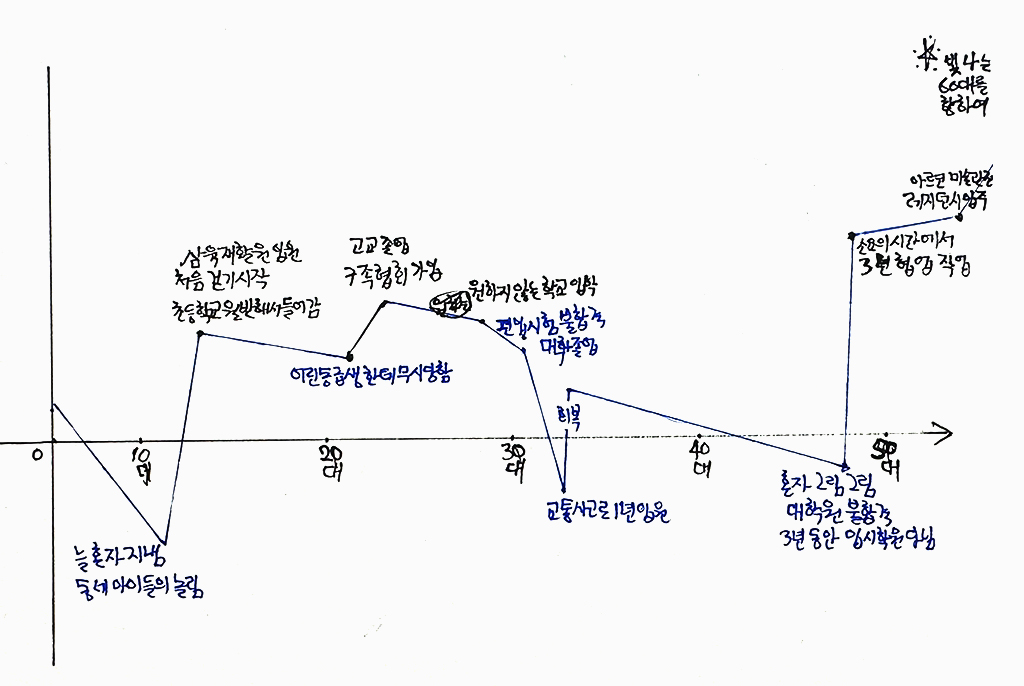 빛나는
60대를
향하여
아르브 미술관
레지던시 입주
소요의시간에서
3년 협업 작업
삼육재활원 입원
처음 걷기시작
초등학교 월반해서 들어감
고교졸업
구족협회 가입
원하지 않는 학교 입학
편입시험 불합격
대학졸업
어린동급생한테 무시당함
회복
0
10
대
20
대
30
대
40
대
50
대
교통사고로 1년입원
혼자 그림 그림
대학원 불합격
3년 동안 입시학원 다님
늘 혼자 지냄
동네 아이들의 놀림